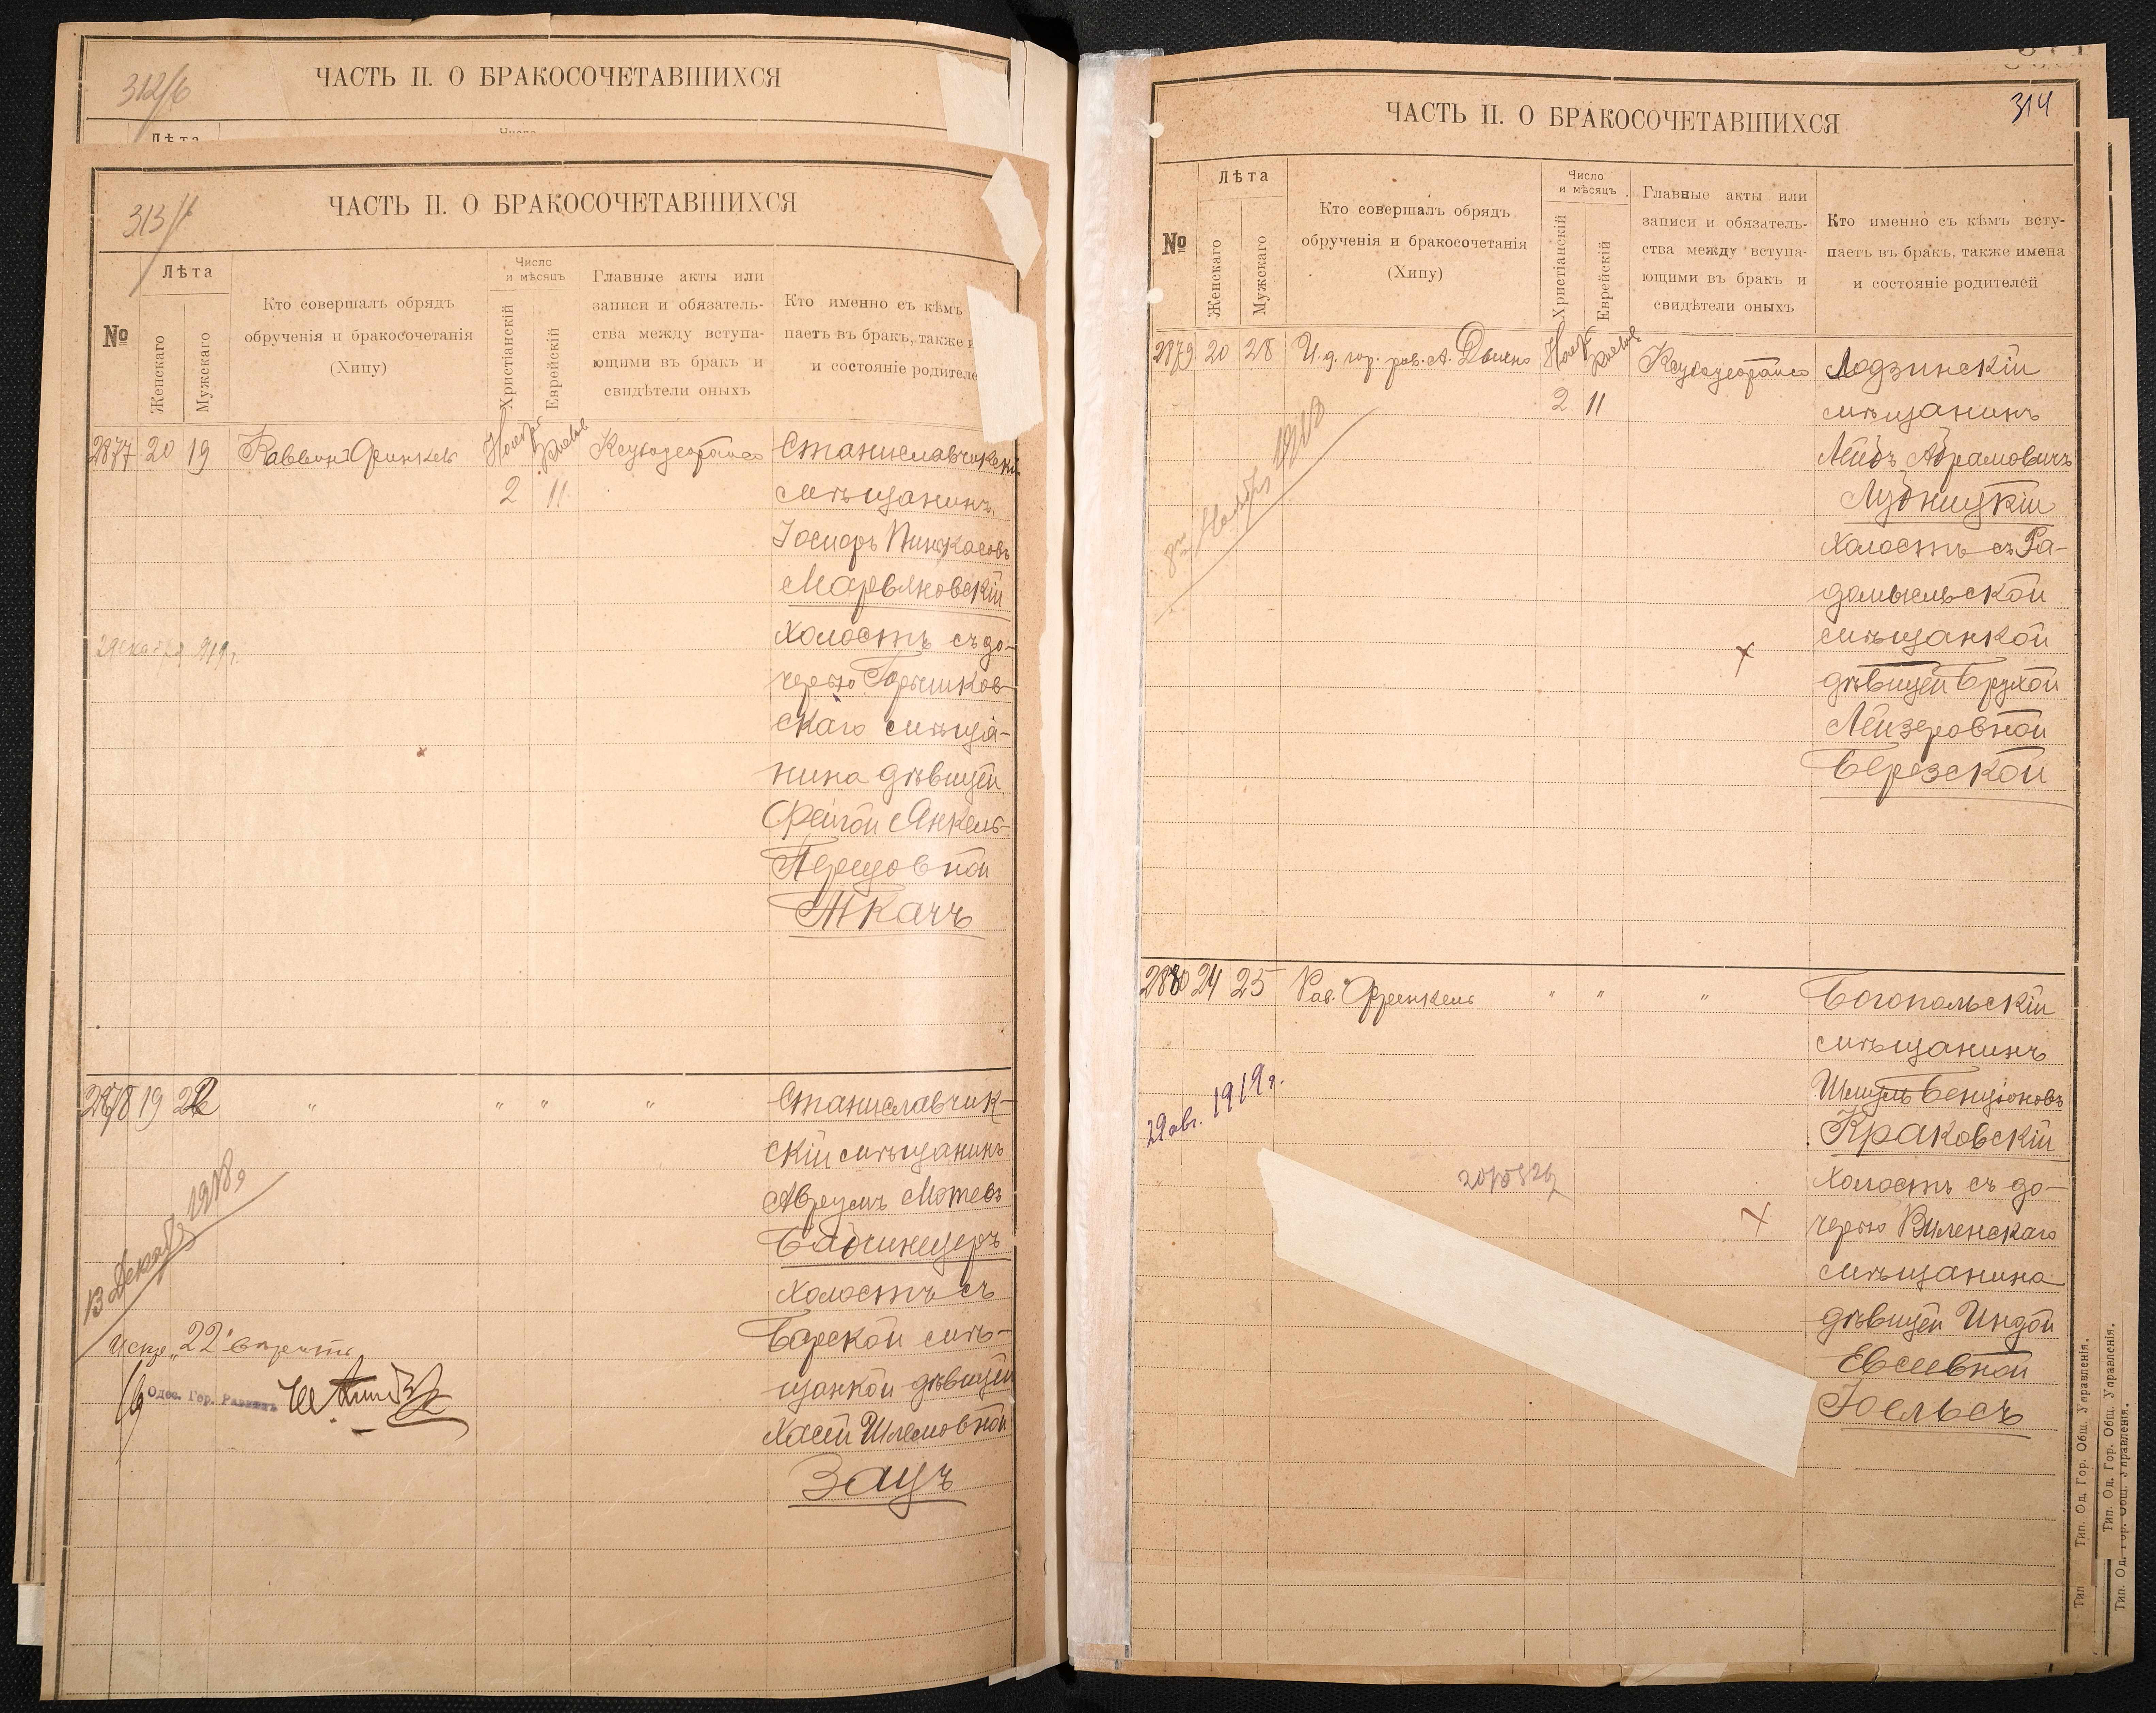 312/6
ЧАСТЬ II. О БРАКОСОЧЕТАВШИХСЯ
Лѣта
Число
313/
ЧАСТЬ II. О БРАКОСОЧЕТАВШИХСЯ
№
Лѣта
Женскаго
Мужскаго
Кто совершалъ обрядъ
обрученія и бракосочетанія
(Хипу)
Число
и мѣсяцъ
Христіанскій
Еврейскій
Главные акты или
записи и обязатель-
ства между вступа-
ющими въ бракъ и
свидѣтели оныхъ
Кто именно съ кѣмъ
паетъ въ бракъ, также
и состояніе родителе
2877 20 19 Раввинъ Френкель Ноябр Кислев
2 11
Станиславчикскій
мѣщанинъ
Іосифъ Пинхасовъ
Марьяновскій
холостъ съ до-
черью Горышков-
скаго мѣща-
нина дѣвицей
Фейгой Янкель-
Перецовной
Ткачъ
2878 19 22 " " " "
Станиславчик-
скій мѣщанинъ
Аврумъ Мотевъ
холостъ съ
Барской мѣ-
щанкой дѣвицей
Хасей Шлемовной
Зацъ
13 Декабр 1918 г.
"22" вѣрить
Одес. Гор. Раввинъ
314
ЧАСТЬ II. О БРАКОСОЧЕТАВШИХСЯ
№
Лѣта
Женскаго
Мужскаго
Кто совершалъ обрядъ
обрученія и бракосочетанія
(Хипу)
Число
и мѣсяцъ
Христіанскій
Еврейскій
Главные акты или
записи и обязатель-
ства между вступа-
ющими въ бракъ и
свидѣтели оныхъ
Кто именно съ кѣмъ всту-
паетъ въ бракъ, также имена
и состояніе родителей
2879 20 28 И.д. гор. рав. А. Ноябр Кислев
2 11
Лодзинскій
мѣщанинъ
Лейбъ Абрамовичъ
Лудницкій
холостъ съ Ра-
домысльской
мѣщанкой
дѣвицей Брухой
Лейзеровной
Березской
Ноября 1918
2880 24 25 Рав. Френкель " " "
Богопольскій
мѣщанинъ
Шмуль Бенціоновъ
Краковскій
холостъ съ до-
черью Виленскаго
мѣщанина
дѣвицей Индой
Евсеевной
Іоельсъ
22 авг. 1919 г.
Тип. Од. Гор. Общ. Управленія.
Тип. Од. Гор. Общ. Управленія.
Тип. Од. Гор. Общ. Управленія.